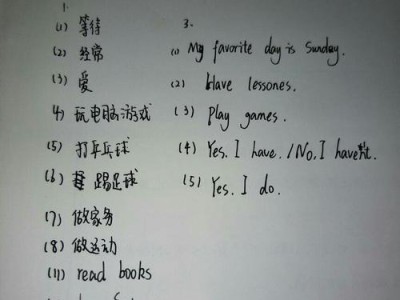 1.
(1) 等待
(2) 经常
(3) 爱
(4) 玩电脑游戏
(5) 打乒乓球
(6) 踢足球
(7) 做家务
(8) 做运动
(11) read books
3.
(1) My favorite day is Sunday.
(2) Have lessones.
(3) Play games.
(4) Yes, I have. / No, I haven't.
(5) Yes, I do.